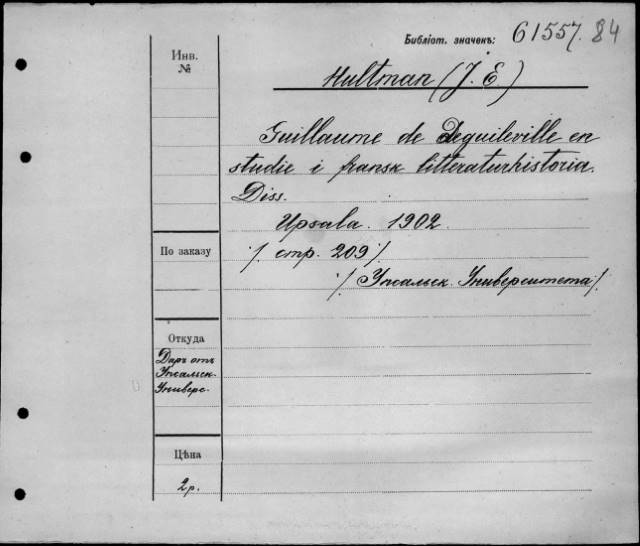 Библіот. значекъ: 61557. 84
Инв.
№
Hultman (J. E.)
Guillaume de Deguileville en
studie i fransk litteraturhistoria.
Diss.
Upsala. 1902.
По заказу
/. стр. 209 /.
/. Упсальск. Университета /.
Откуда
Даръ отъ
Упсальск.
Универс.
Цѣна
2 р.